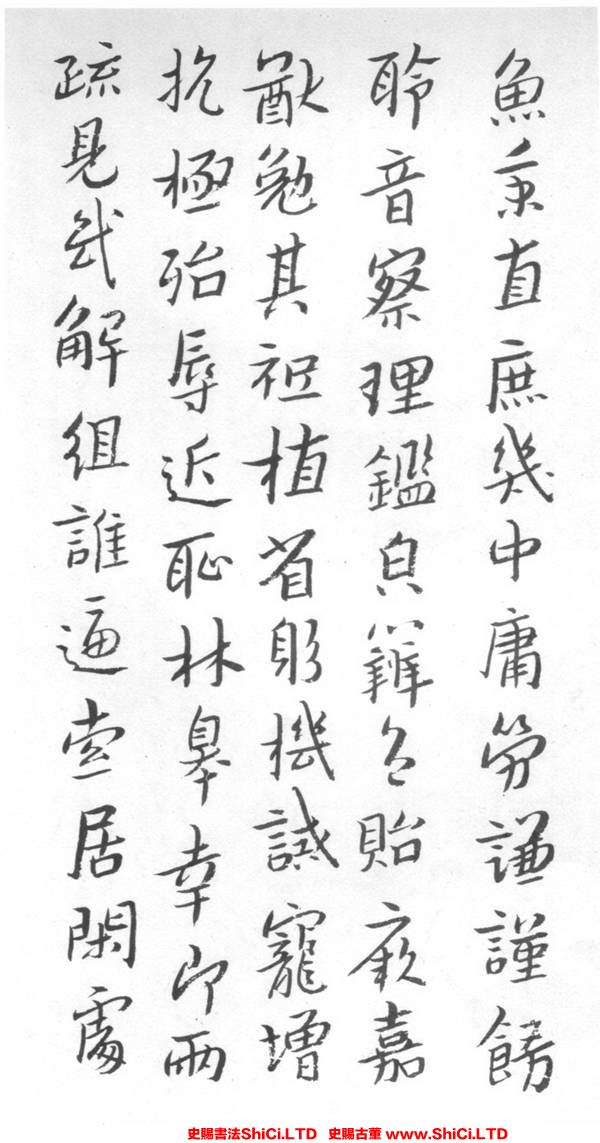 魚秉直庶幾中庸勞謙謹餝
聆音察理鑑皃辯色貽厥嘉
猷勉其祗植省躬機誡寵增
抗極殆辱近恥林皋幸即兩
疏見機解組誰逼索居閑處
史賜書法ShiCi.LTD 史賜古董 www.ShiCi.LTD